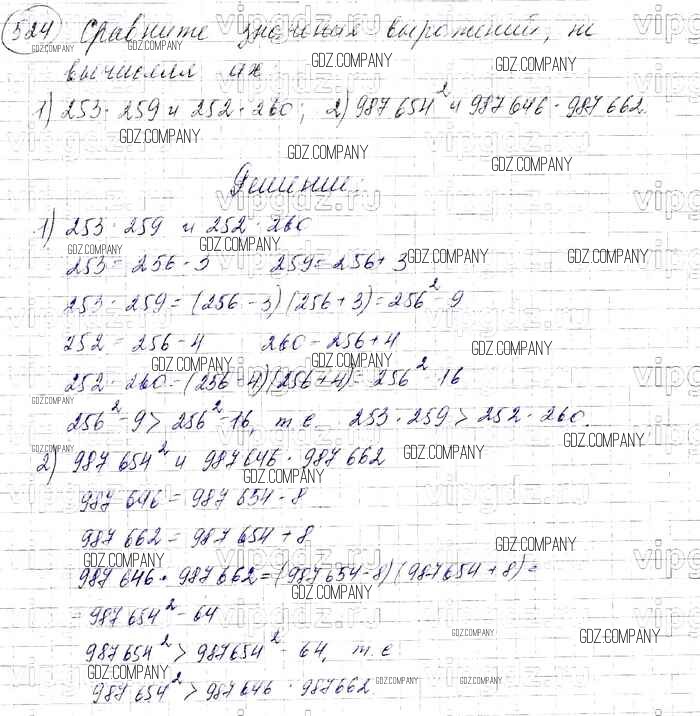 524 Сравните значения выражений, не
вычисляя их
1) 253 · 259 и 252 · 260; 2) 987 654² и 987 646 · 987 662.
Решение:
1) 253 · 259 и 252 · 260
253 = 256 - 3 259 = 256 + 3
253 · 259 = (256 - 3)(256 + 3) = 256² - 9
252 = 256 - 4 260 = 256 + 4
252 · 260 = (256 - 4)(256 + 4) = 256² - 16
256² - 9 > 256² - 16, т.е. 253 · 259 > 252 · 260.
2) 987 654² и 987 646 · 987 662
987 646 = 987 654 - 8
987 662 = 987 654 + 8
987 646 · 987 662 = (987 654 - 8)(987 654 + 8) =
= 987 654² - 64
987 654² > 987 654² - 64, т.е.
987 654² > 987 646 · 987 662
GDZ.COMPANY
vipgdz.ru